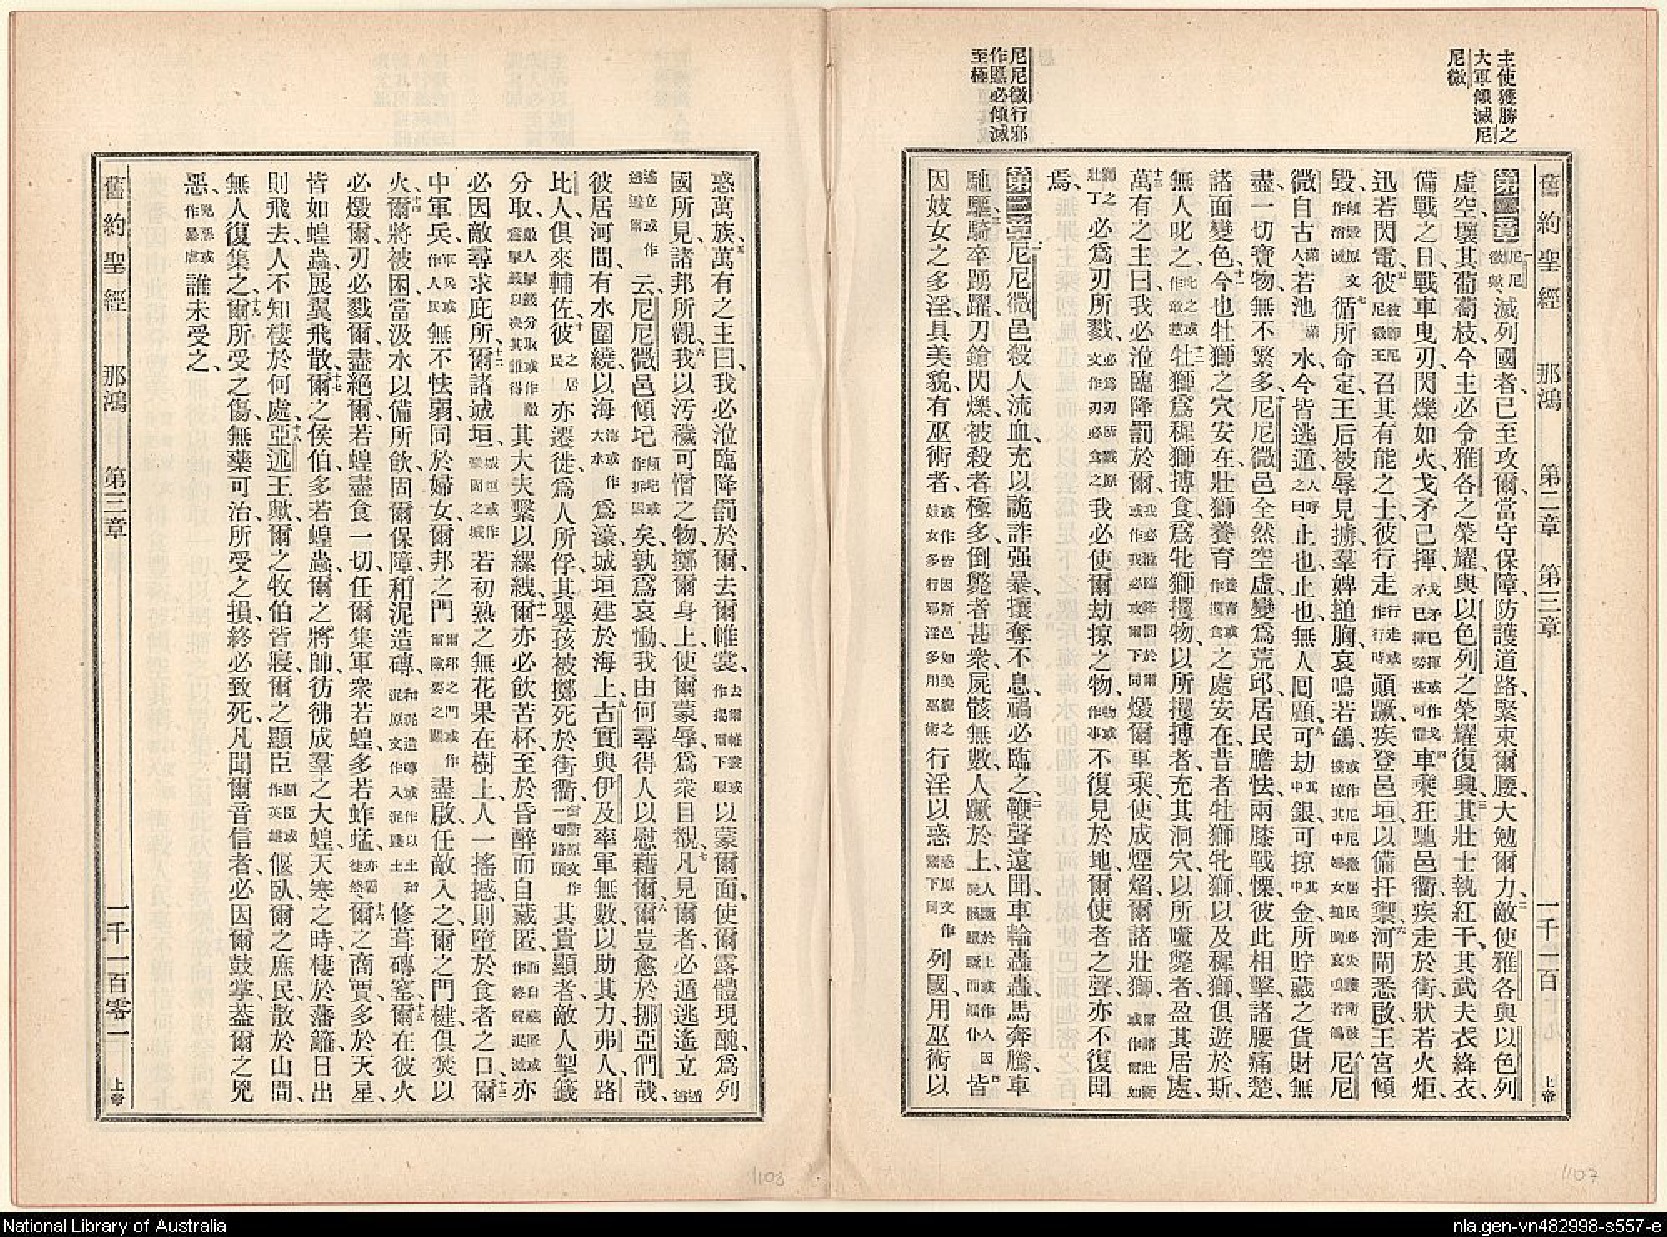 主使獲勝之
大軍傾滅尼
尼微
尼尼微行邪
作慝必傾滅
至極
舊約聖經 那鴻 第二章 第三章 一千一百 上帝
第二章 滅列國者、已至攻爾、當守保障、防護道路、緊束爾腰、大勉爾力、敵使雅各與以色列
虛空、壞其葡萄枝、今主必令雅各之榮耀、與以色列之榮耀復興、其壯士執紅干、其武夫衣絳衣、
備戰之日、戰車曳刃、閃爍如火、戈矛已揮、戈矛已揮或作戈矛已揮勢甚可懼車乘狂馳邑衢、疾走於街、狀若火炬、
迅若閃電、彼彼卽尼尼微王召其有能之士、彼行走行走或作行時顛蹶、疾登邑垣、以備扞禦、河閘悉啟、王宮傾
毀、循所命定、王后被辱見擄、羣婢搥胸哀鳴若鴿、尼尼
微自古人若池水、今皆逃遁、人呼之曰止也止也、無人回顧、可劫其中銀、可掠其中金、所貯藏之貨財無
盡、一切寶物、無不繁多、尼尼微邑全然空虛、變爲荒邱、居民膽怯、兩膝戰慄、彼此相擊、諸腰痛楚、
諸面變色、今也牡獅之穴安在、壯獅養育之處安在、昔者牡獅牝獅、以及穉獅、俱遊於斯、
無人叱之、牡獅爲穉獅搏食、爲牝獅攫物、以所攫搏者、充其洞穴、以所囓斃者、盈其居處、
萬有之主曰、我必涖臨降罰於爾、燬爾車乘、使成煙焰、爾諸壯獅、
必爲刃所戮、我必使爾劫掠之物、不復見於地、爾使者之聲、亦不復聞
焉、
第三章 尼尼微邑、殺人流血、充以詭詐强暴、攘奪不息、禍必臨之、鞭聲遠聞、車輪轟轟、馬奔騰、車
馳驅、騎卒踴躍、刀鎗閃爍、被殺者極多、倒斃者甚衆、屍骸無數、人蹶於上、皆
因妓女之多淫、具美貌、有巫術者、行淫以惑列國、用巫術以
惑萬族、萬有之主曰、我必涖臨降罰於爾、去爾帷裳、以蒙爾面、使爾露體現醜、爲列
國所見、諸邦所觀、我以汚穢可憎之物、擲爾身上、使爾蒙辱、爲衆目覩、凡見爾者、必遁逃遙立、
云、尼尼微邑傾圮矣、孰爲哀慟、我由何尋得人以慰藉爾、爾豈愈於挪亞們哉、
彼居河間、有水圍繞、以海爲濠、城垣建於海上、古實與伊及、率軍無數、以助其力、弗人路
比人、俱來輔佐、彼亦遷徙、爲人所俘、其嬰孩被擲死於街衢、其貴顯者、敵人掣籤
分取、其大夫繫以縲絏、爾亦必飮苦杯、至於昏醉而自藏匿、亦
必因敵尋求庇所、爾諸城垣、若初熟之無花果在樹上、人一搖撼、則墮於食者之口、爾
中軍兵、無不怯弱、同於婦女、爾邦之門、盡啟任敵入之、爾之門楗、俱焚以
火、爾將被困、當汲水以備所飮、固爾保障、和泥造磚、修葺磚窰、爾在彼火
必燬爾、刃必戮爾、盡絕爾、若蝗盡食一切、任爾集軍衆若蝗、多若蚱蜢、爾之商賈、多於天星、
皆如蝗蟲、展翼飛散、爾之侯伯、多若蝗蟲、爾之將帥、彷彿成羣之大蝗、天寒之時、棲於藩籬、日出
則飛去、人不知棲於何處、亞述王歟、爾之牧伯皆寢、爾之顯臣偃臥、爾之庶民、散於山間、
無人復集之、爾所受之傷、無藥可治、所受之損、終必致死、凡聞爾音信者、必因爾鼓掌、蓋爾之兇
惡、誰未受之、
舊約聖經 那鴻 第三章 一千一百零一 上帝
1108
1107
National Library of Australia
nla.gen-vn482998-s557-e